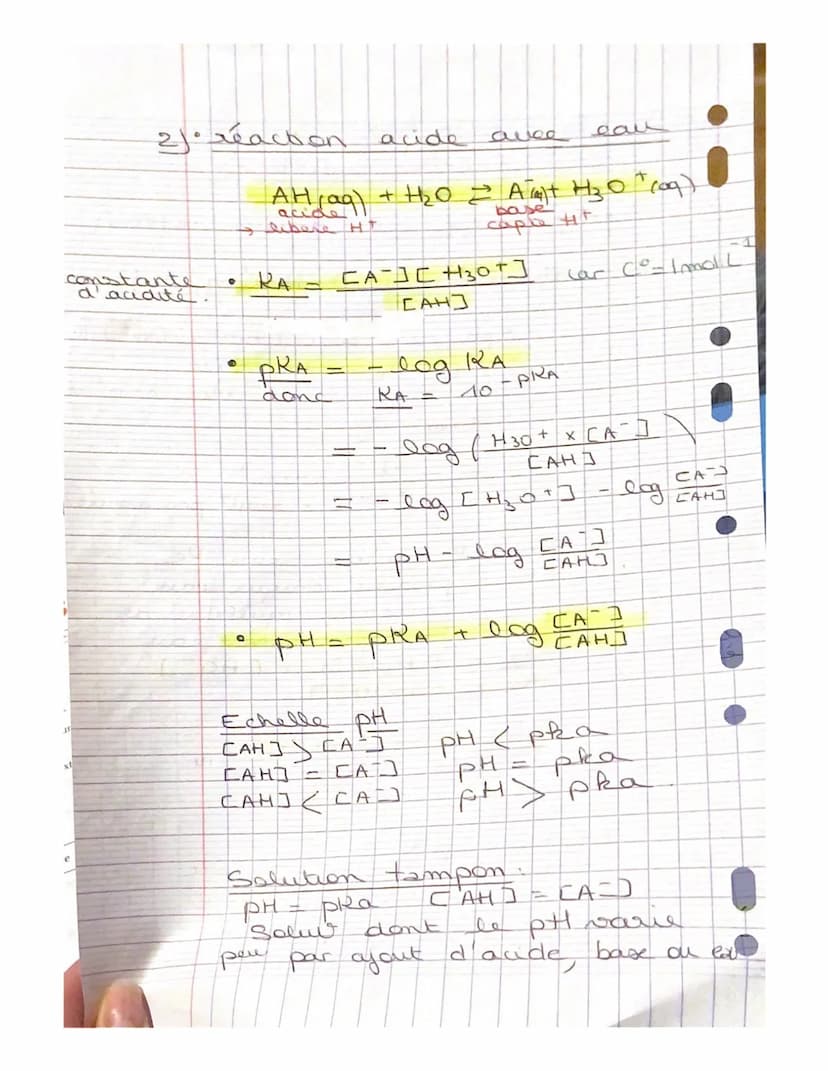 2)• réaction acide avec eau
AH(aq) + H2O ⇄ A⁻(aq) + H3O⁺(aq)
acide base
→ libère H⁺ capte H⁺
constante d'acidité.
• KA = [A⁻][H3O⁺] / [AH] car C° = 1 mol L⁻¹
• pKA = - log KA
donc KA = 10^-pKA
= - log ( H3O⁺ x [A⁻] / [AH] )
= - log [H3O⁺] - log [A⁻] / [AH]
= pH - log [A⁻] / [AH]
• pH = pKA + log [A⁻] / [AH]
Echelle pH
[AH] > [A⁻] pH < pka
[AH] = [A⁻] pH = pka
[AH] < [A⁻] pH > pka
Solution tampon:
pH = pka [AH] = [A⁻]
Solut° dont le pH varie
peu par ajout d'acide, base ou eau